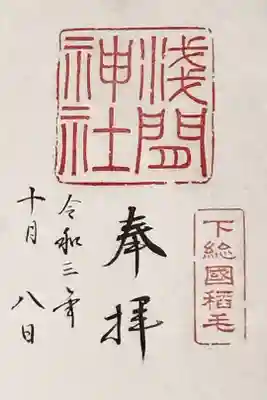 浅間
神社
下総國稲毛
奉拝
令和三年
十月八日